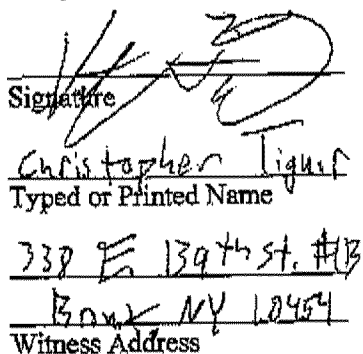 Signature
Christopher
Typed or Printed Name
338 E 139th st. #1B
Bronx NY 10454
Witness Address